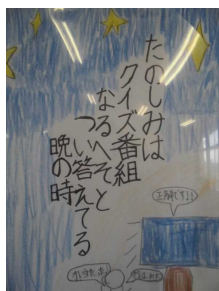 たのしみは
クイズ番組
なるへそと
つい答えてる
晩の時
正解です!!